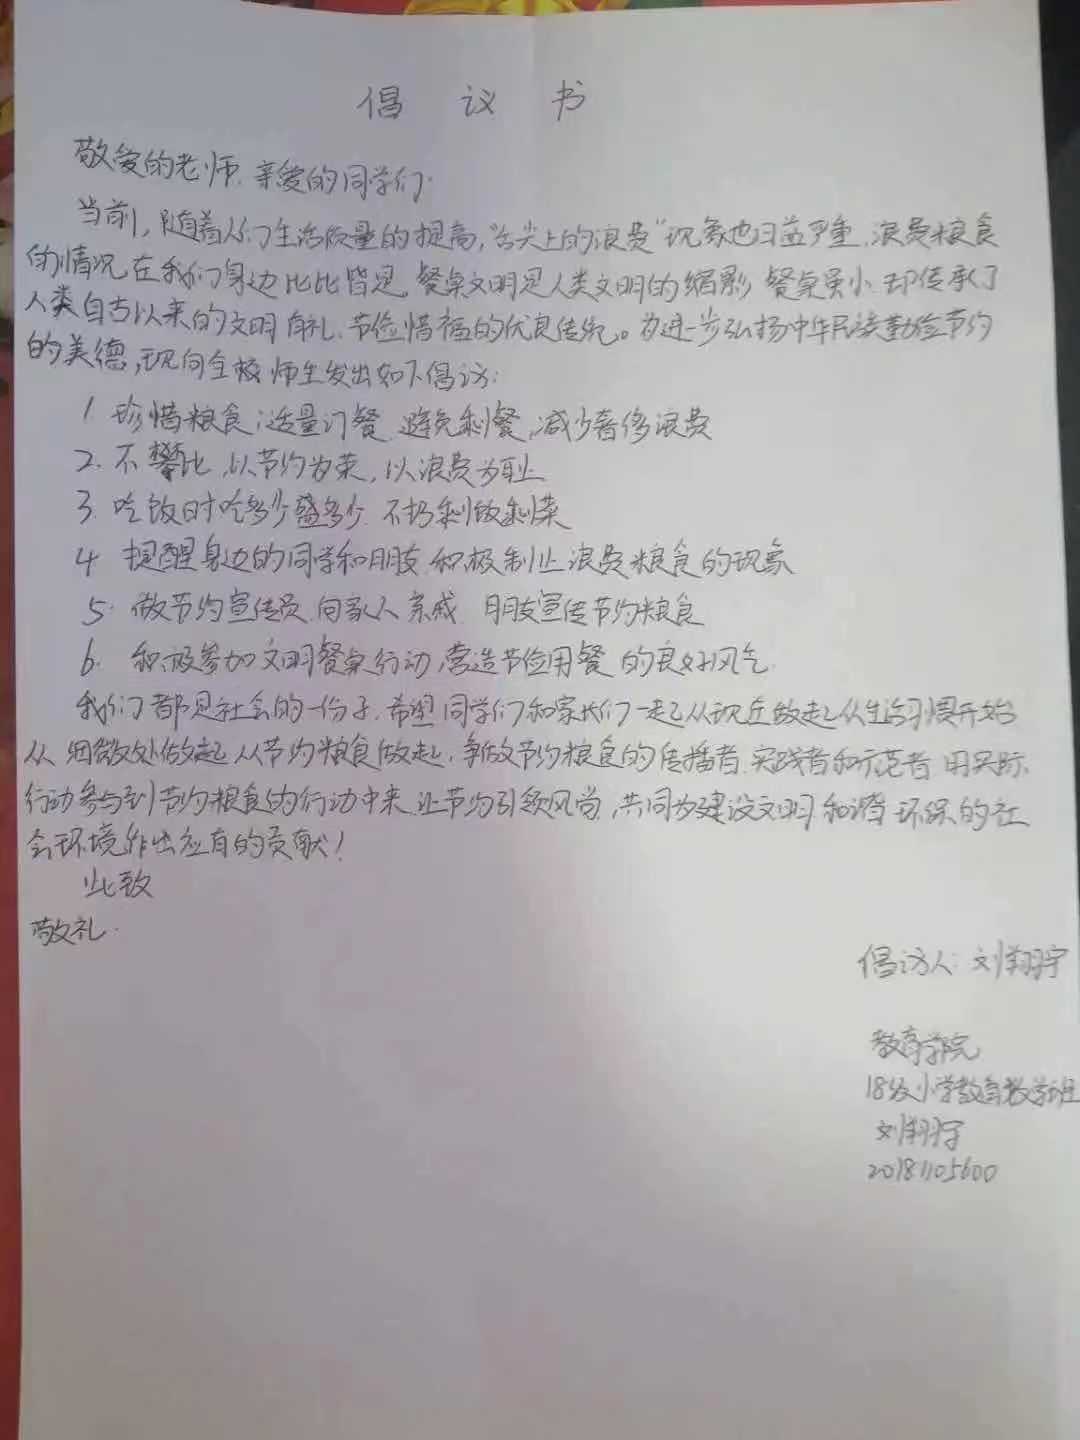 倡议书
敬爱的老师、亲爱的同学们:
当前,随着人们生活质量的提高,“舌尖上的浪费”现象也日益严重,浪费粮食
的情况在我们身边比比皆是,餐桌文明是人类文明的缩影,餐桌虽小,却传承了
人类自古以来的文明有礼、节俭惜福的优良传统。为进一步弘扬中华民族勤俭节约
的美德,现向全校师生发出如下倡议:
1. 珍惜粮食,适量订餐,避免剩餐,减少奢侈浪费
2. 不攀比,以节约为荣,以浪费为耻
3. 吃饭时吃多少盛多少,不扔剩饭剩菜
4 提醒身边的同学和朋友,积极制止浪费粮食的现象
5. 做节约宣传员,向家人、亲戚、朋友宣传节约粮食
6. 积极参加文明餐桌行动,营造节俭用餐的良好风气
我们都是社会的一份子,希望同学们和家长们一起从现在做起,从生活习惯开始
从细微处做起,从节约粮食做起,争做节约粮食的传播者、实践者和示范者,用实际
行动参与到节约粮食的行动中来,让节约引领风尚,共同为建设文明、和谐、环保的社
会环境作出应有的贡献!
此致
敬礼.
倡议人:刘翔宇
教育学院
18级小学教育数学班
刘翔宇
20181105600